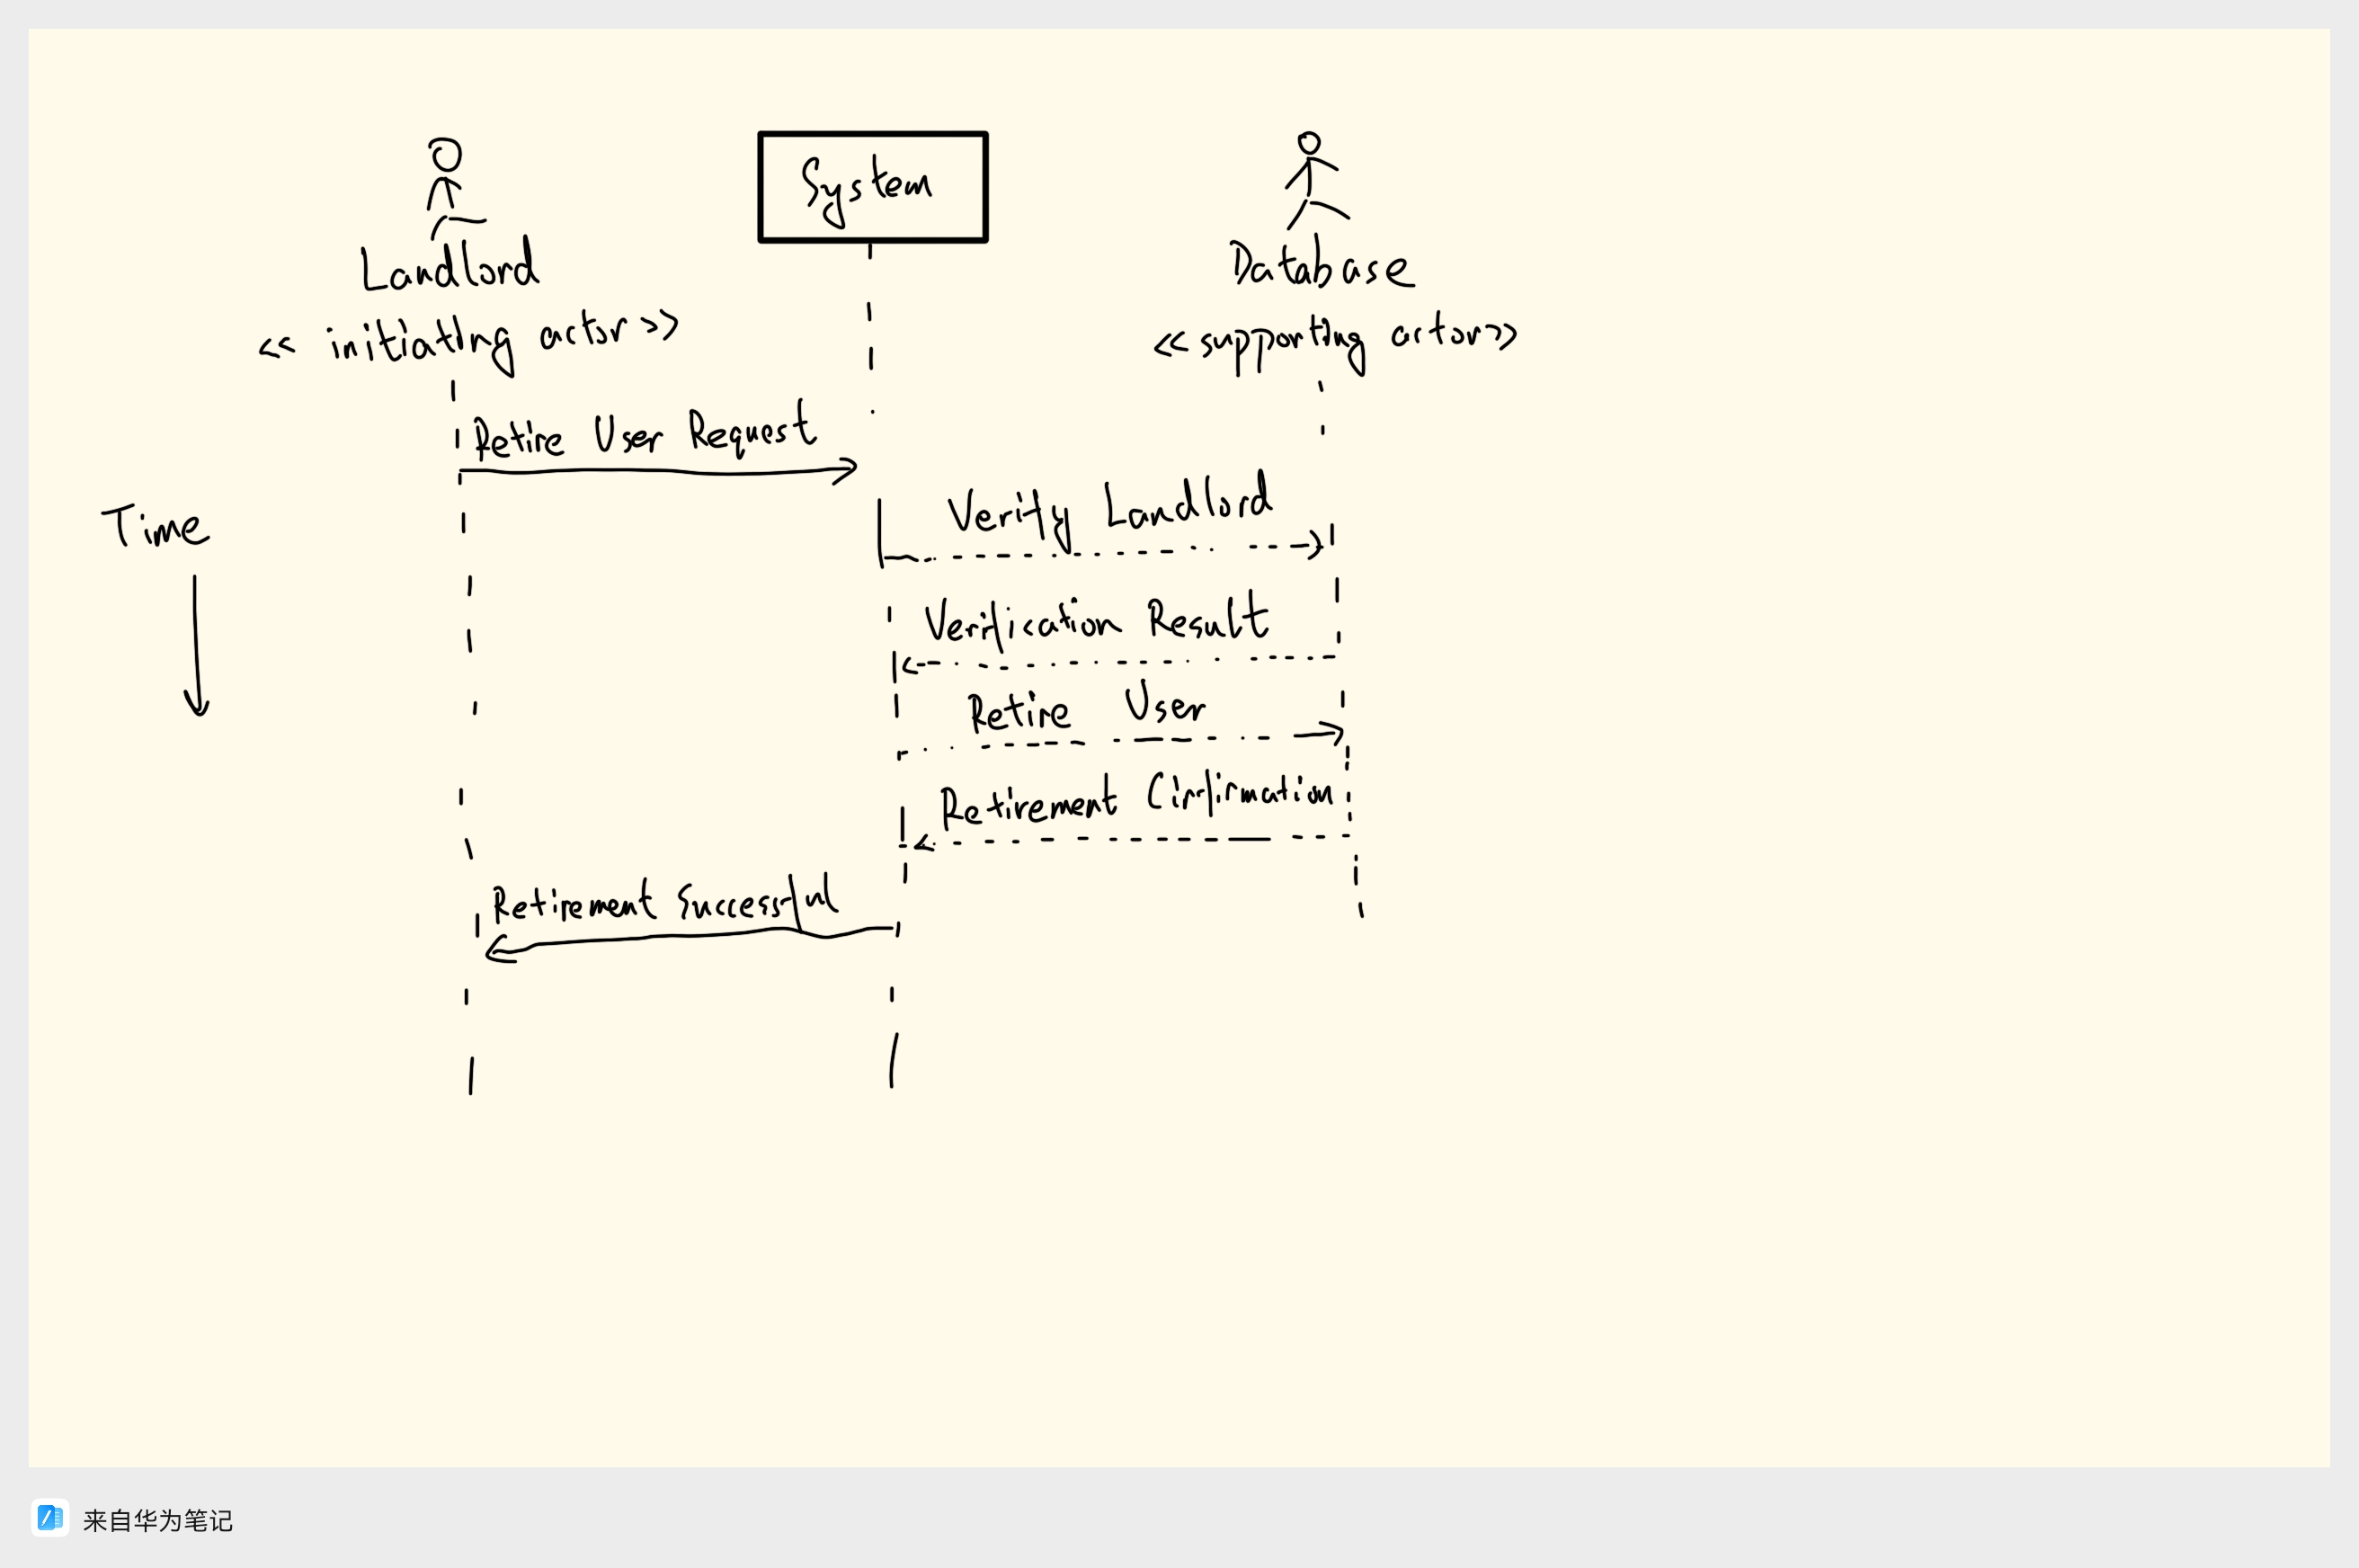 System
Landlord
Database
<< initiating actor >>
<< supporting actor >>
Retire User Request
Verify Landlord
Time
Verification Result
Retire User
Retirement Cinfirmation
Retirement Successful
来自华为笔记